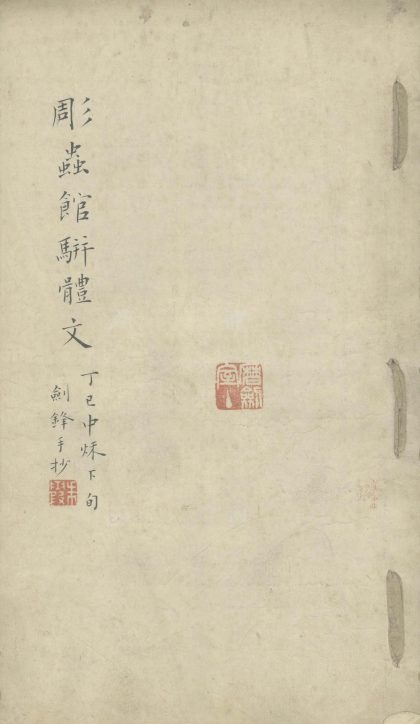 彫蟲館騈體文
丁巳中秌下旬
劍鋒手抄